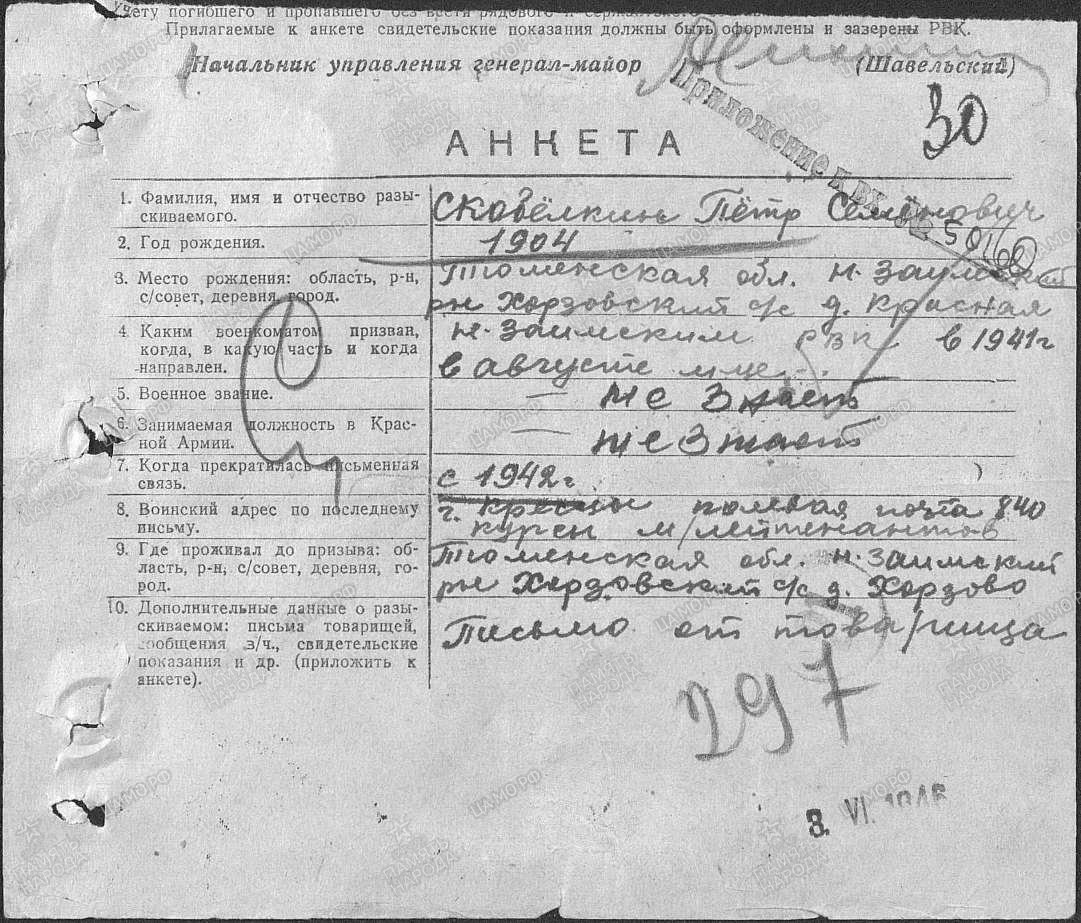 учету погибшего и пропавшего без вести рядового и
Прилагаемые к анкете свидетельские показания должны быть оформлены и заверены РВК.
Начальник управления генерал-майор (Шавельский)
Приложение к вх.
30
АНКЕТА
1. Фамилия, имя и отчество разы-
скиваемого.
Скобёлкин Пётр Семёнович
2. Год рождения.
1904
3. Место рождения: область, р-н,
с/совет, деревня, город.
Тюменская обл. Н-Заимский
рн Хорзовский с/с д. Красная
4. Каким военкоматом призван,
когда, в какую часть и когда
направлен.
Н-Заимским рвк в 1941г
в августе м-це
5. Военное звание.
— не знает
6. Занимаемая должность в Крас-
ной Армии.
— не знает
7. Когда прекратилась письменная
связь.
с 1942г
8. Воинский адрес по последнему
письму.
г. полевая почта 840
курсы м/лейтенантов
9. Где проживал до призыва: об-
ласть, р-н, с/совет, деревня, го-
род.
Тюменская обл. Н-Заимский
рн Хорзовский с/с д. Хорзово
10. Дополнительные данные о разы-
скиваемом: письма товарищей,
сообщения в/ч., свидетельские
показания и др. (приложить к
анкете).
Письмо от товарища
297
3. VI. 1946